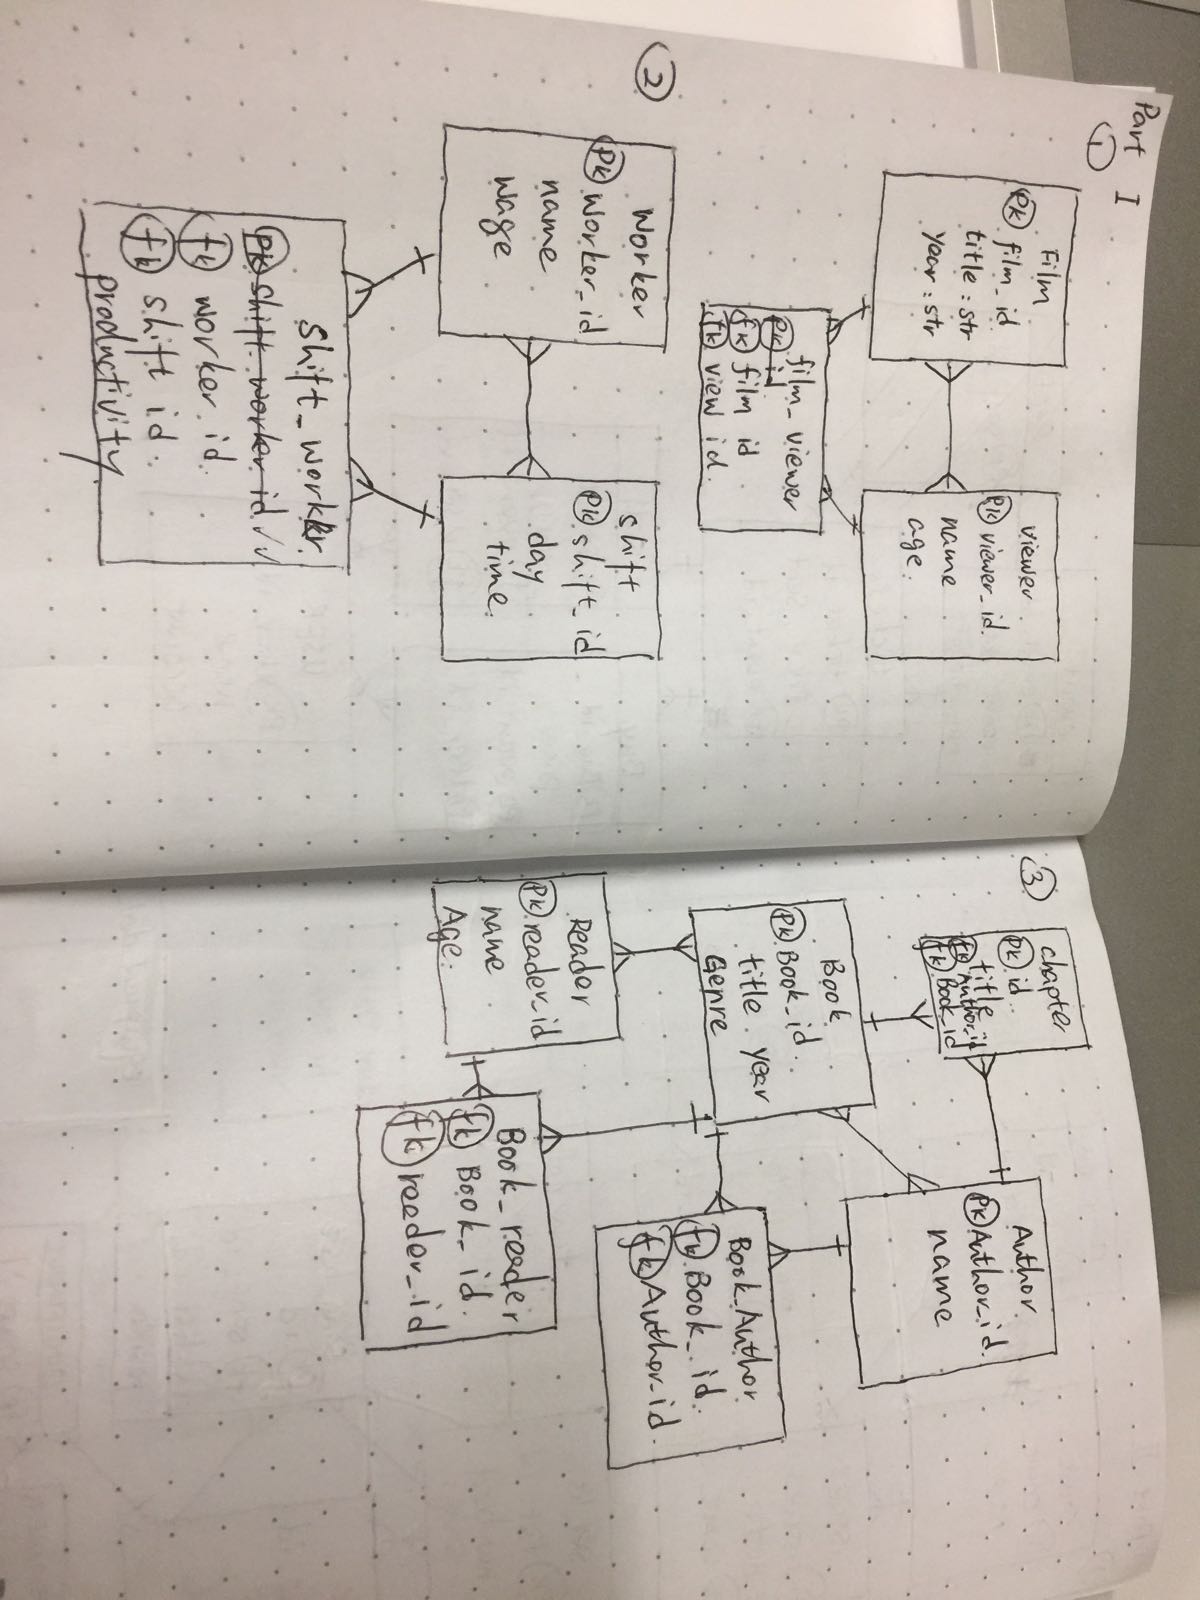 Part I
①
Film
PK film_id
title : str
year : str
viewer
PK viewer_id
name
age
film_viewer
PK id
fk film id
fk view id
②
Worker
PK worker_id
name
wage
shift
PK shift_id
day
time
shift_worker
PK shift-worker id
fk worker id
fk shift id
productivity
③
chapter
PK id
title
fk Author_id
fk Book_id
Author
PK Author_id
name
Book
PK Book_id
title year
Genre
Book_Author
fk Book_id
fk Author_id
Reader
PK reader_id
name
Age
Book_reeder
fk Book_id
fk reeder_id